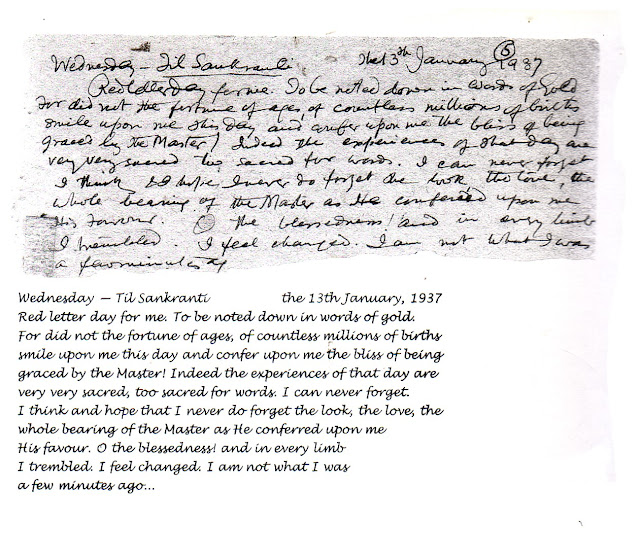 Wednesday – Til Sankranti the 13th January 1937
Red letter day for me. To be noted down in words of Gold
For did not the fortune of ages, of countless millions of births
smile upon me this day and confer upon me the bliss of being
graced by the Master! Indeed the experiences of that day are
very very sacred too sacred for words. I can never forget
I think & I hope I never do forget the look, the love, the
whole bearing of the Master as He conferred upon me
His favour. O the blessedness! and in every limb
I trembled. I feel changed. I am not what I was
a few minutes ag
Wednesday — Til Sankranti the 13th January, 1937
Red letter day for me. To be noted down in words of gold.
For did not the fortune of ages, of countless millions of births
smile upon me this day and confer upon me the bliss of being
graced by the Master! Indeed the experiences of that day are
very very sacred, too sacred for words. I can never forget.
I think and hope that I never do forget the look, the love, the
whole bearing of the Master as He conferred upon me
His favour. O the blessedness! and in every limb
I trembled. I feel changed. I am not what I was
a few minutes ago...